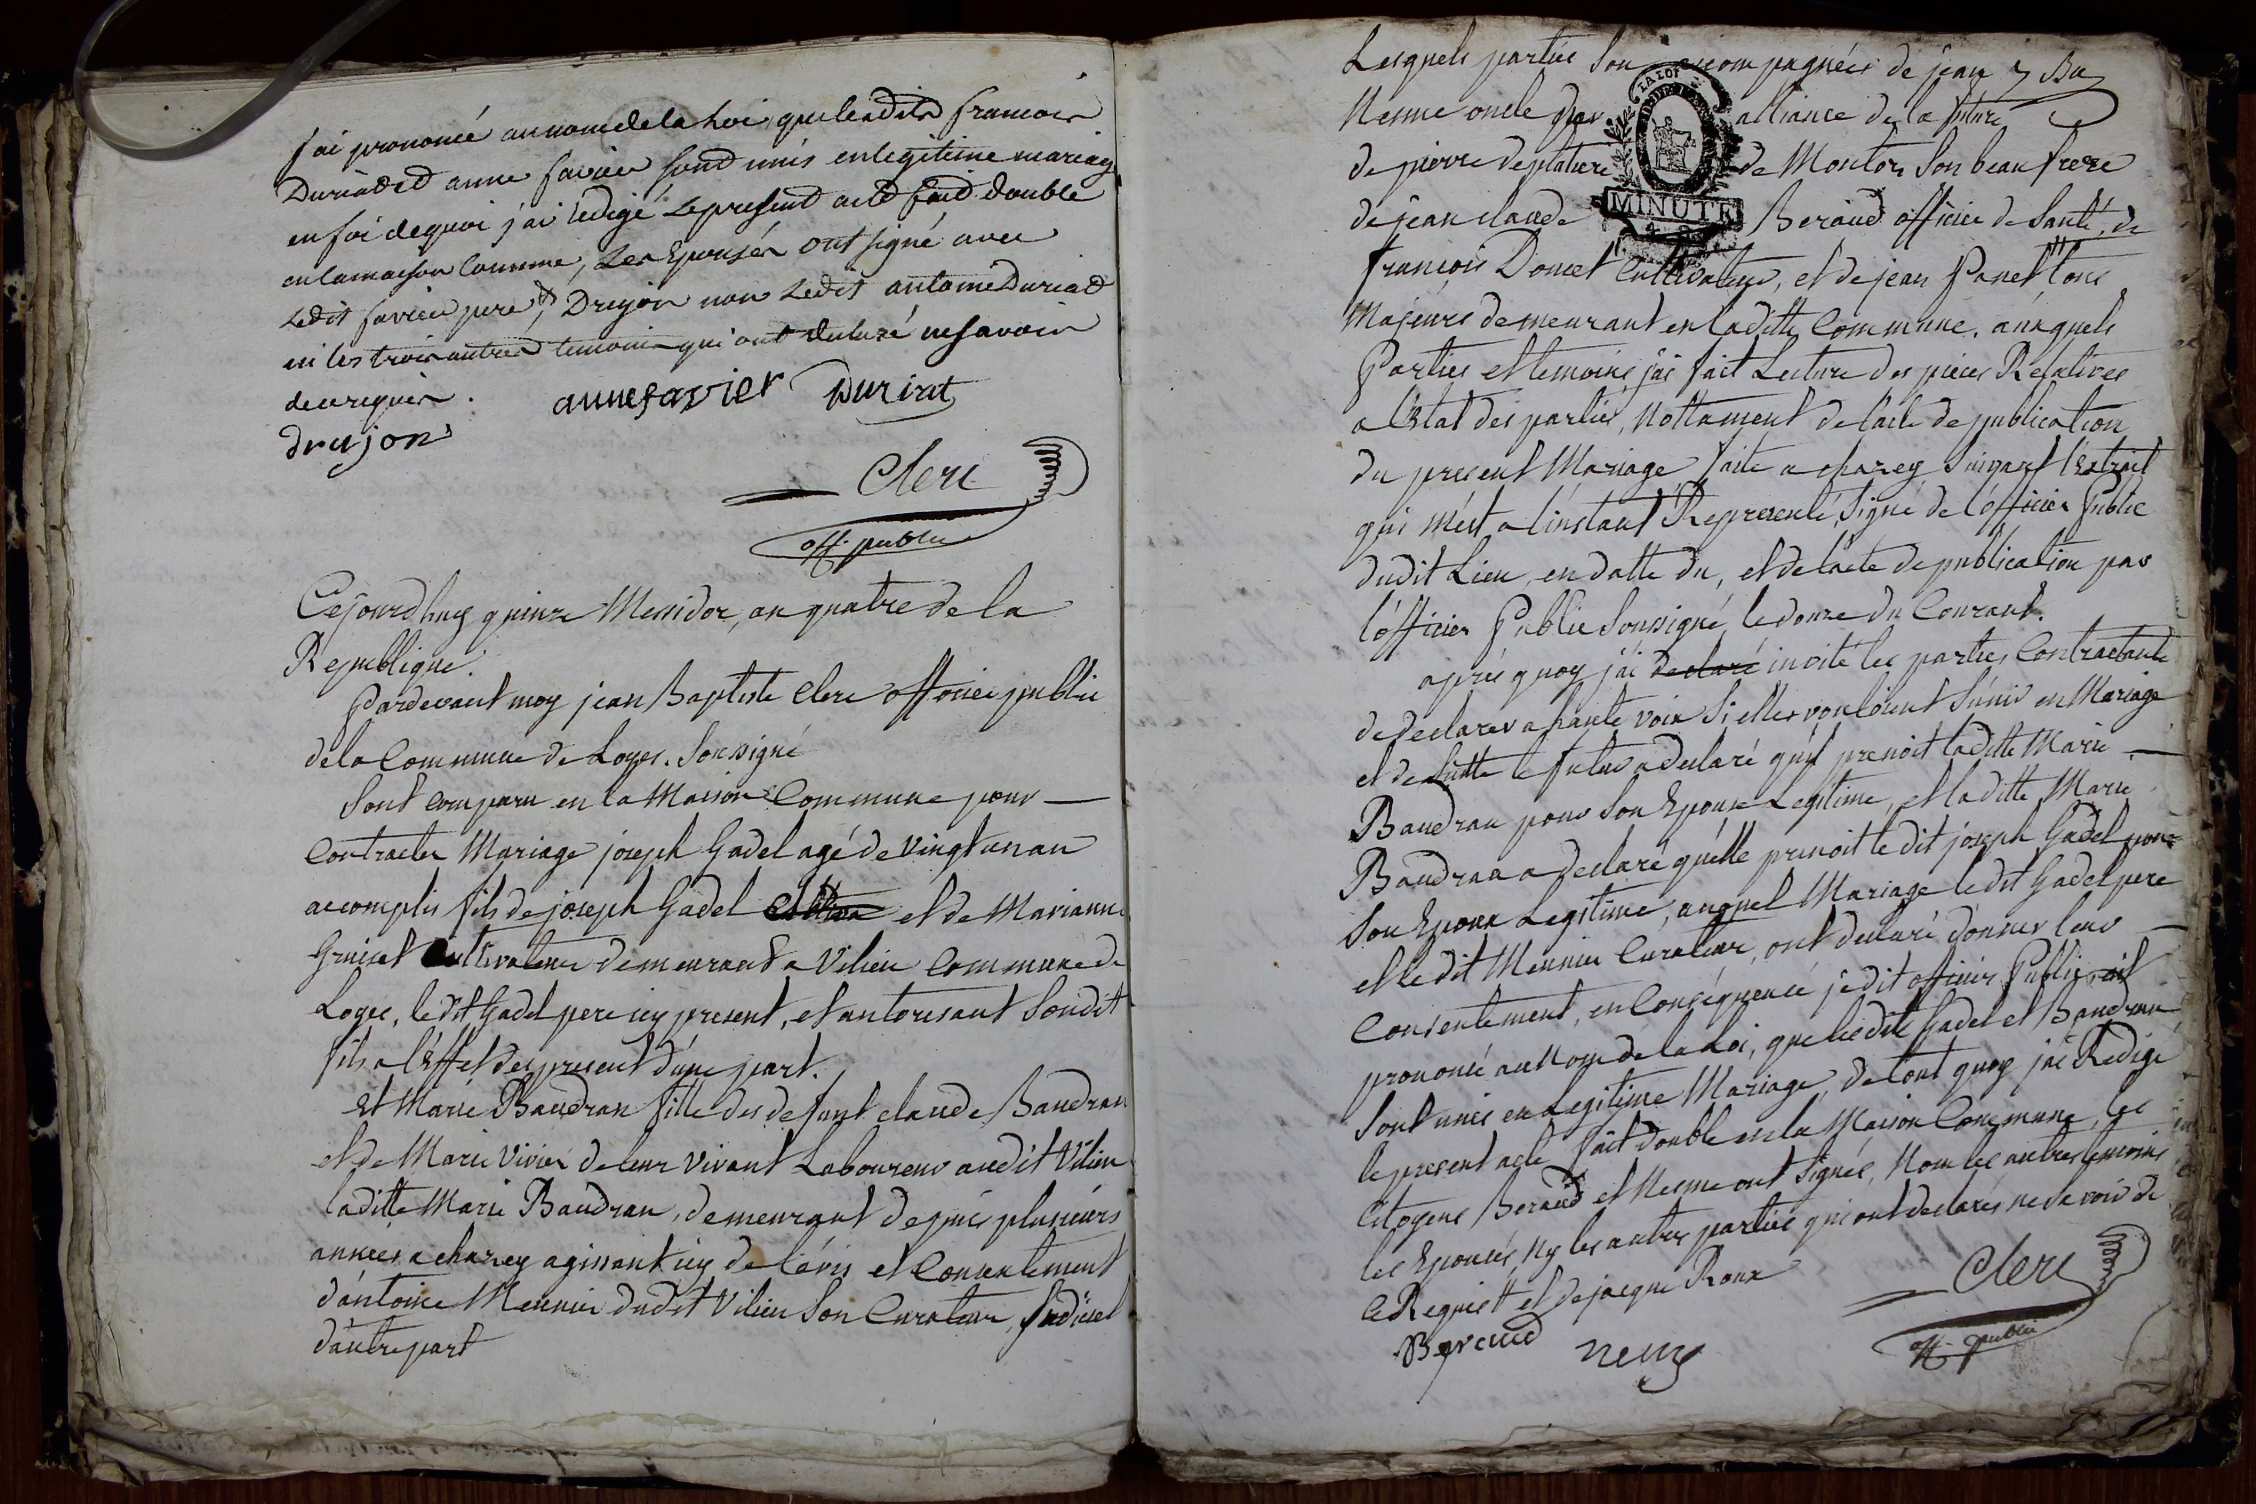 j'ai prononcé au nom de la Loi que lesdits francois
Duriat et anne favier sont unis en legitime mariage
en foi de quoi j'ai redigé le present acte fait double
en la maison commune, les Epousés ont signé avec
ledit favier pere, & Drujon non ledit antoine Duriat
ni les trois autres temoins qui ont declaré ne savoir
de ce requis.
anne favier Duriat
drujon
Clerc
off. public
Cejourdhuy quinze Messidor, an quatre de la
Republique.
Pardevant moy jean Baptiste Clerc officier public
de la Commune de Loyes. Soussigné
Sont comparu en la Maison Commune pour
Contracter Mariage joseph Gadel agé de vingt un an
accomplis fils de joseph Gadel et de Marianne
Cultivateur demeurant a Vilieu Commune de
Loyes, le dit Gadel pere icy present, et autorisant Sondit
fils a l'Effet des present d'une part.
Et Marie Baudran fille des defunt claude Baudran
et de Marie Vivier de leur vivant Laboureur audit Vilieu
laditte Marie Baudran, demeurant depuis plusieurs
années a charey agissant icy de l'avis et Consentement
d'antoine Meunier dudit Vilieu Son Curateur,
d'autre part
Lesquels parties Son accompagnées de jean
Nesme oncle par alliance de la future
de pierre de Montor Son beau frere
de jean claude Beraud officier de Santé, de
françois Doucet Cultivateur, et de jean Panet tous
Majeurs demeurant en laditte Commune. auxquels
Parties et temoins j'ai fait Lecture des pieces Relatives
a l'Etat des parties, Nottament de l'acte de publication
du present Mariage faite a charey Suivant l'Extrait
qui m'est a l'instant Representé, Signé de l'officier Public
dudit Lieu, en datte du, et de l'acte de publication par
l'officier Public Soussigné, le douze du Courant.
après quoy j'ai declaré invité les parties Contractante
de declarer a haute voix Si elles vouloient S'unir en Mariage
et de Suitte le futur a declaré qu'il prenoit laditte Marie
Baudran pour Son Epouse Legitime, et laditte Marie
Baudran a declaré qu'elle prenoit le dit joseph Gadel pour
Son Epoux Legitime, auquel Mariage le dit Gadel pere
et le dit Meunier Curateur, ont declaré donner leur
Consentement, en Conséquence je dit officier Public ait
prononcé au Nom de la Loi, que lesdits Gadel et Baudran
Sont unis en Legitime Mariage, de tout quoy j'ai Redigé
le present acte fait double en la Maison Commune, les
Citoyens Beraud et Nesme ont Signés, Non les autres temoins
les Epousés, Ny les autres parties qui ont declarés ne Savoir de
ce Requis et de jacque Roux
Clerc
off. public
Beraud
MINUTE
LA LOI